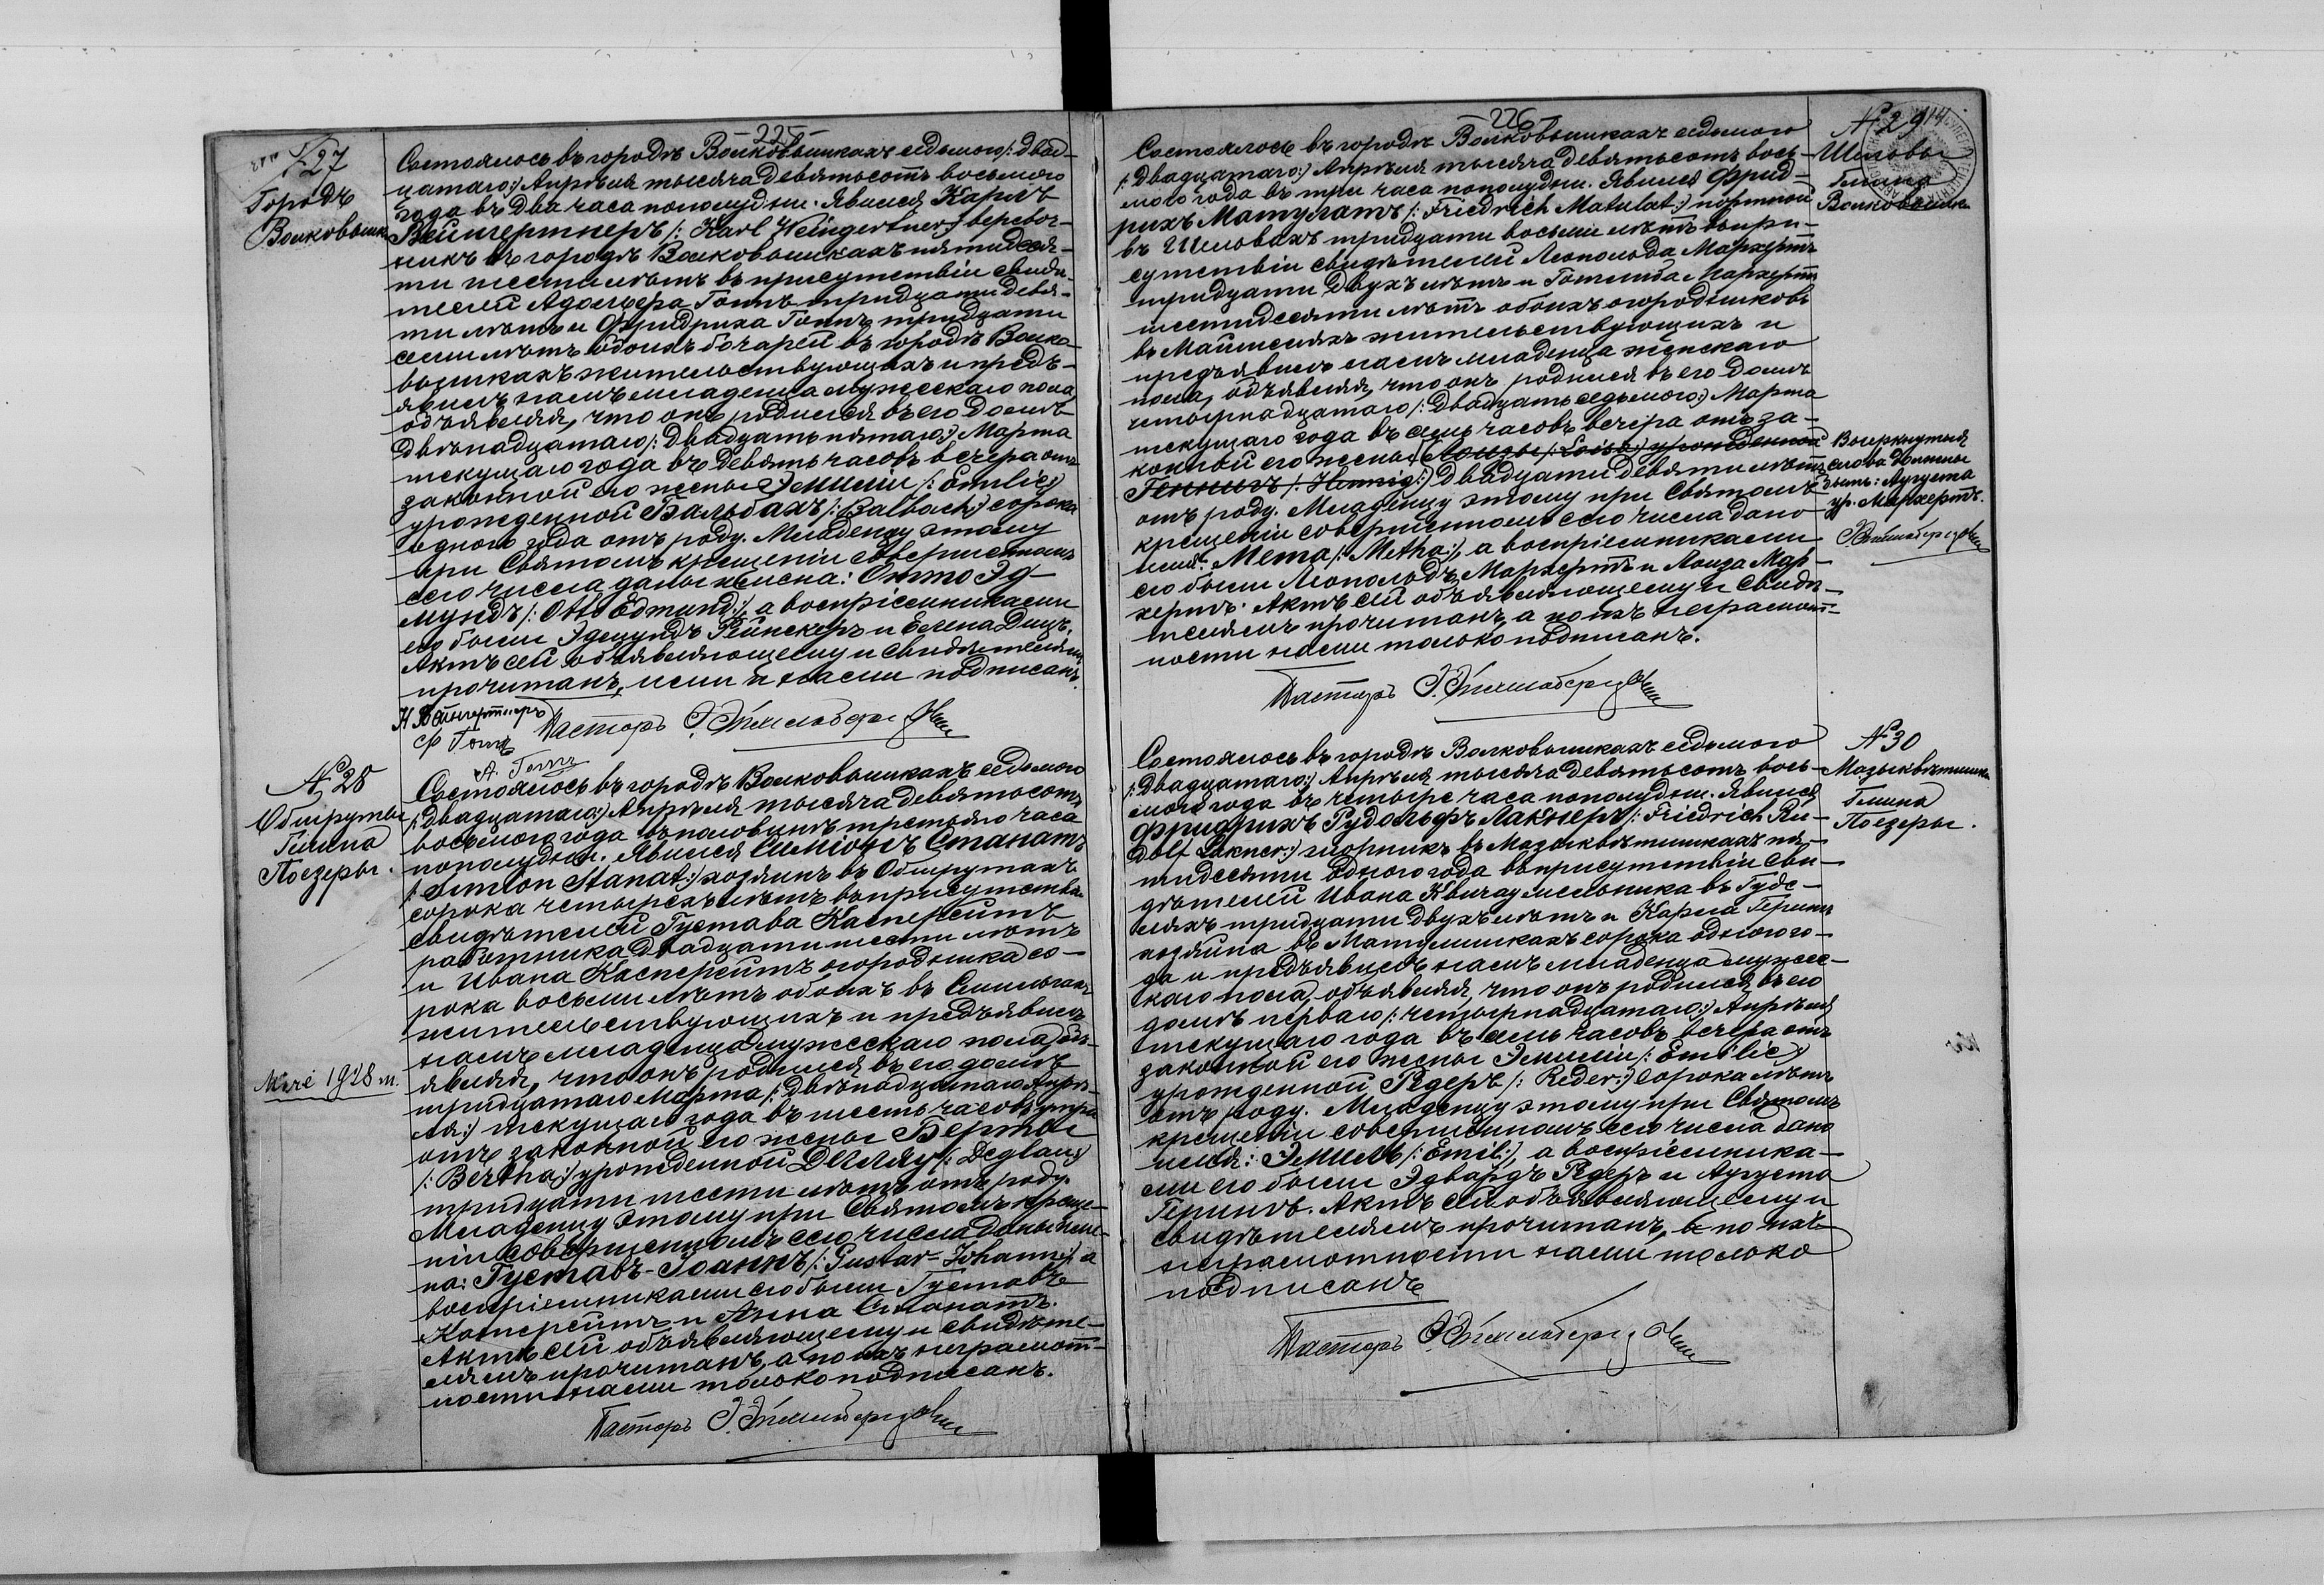 -225-
№ 27
Городъ
Волковышки
Состоялось въ городѣ Волковышкахъ седьмого /: двад-
цатаго :/ Апрѣля тысяча девятьсотъ восьмого
года въ два часа пополудни. Явился Карлъ
Вейнгертнеръ /: Karl Weingertner :/ веревоч-
никъ въ городѣ Волковышкахъ пятидеся-
ти шести лѣтъ въ присутствіи свидѣ-
телей Адольфа Гоппъ тридцати девя-
ти лѣтъ и Фридриха Гоппъ тридцати
семи лѣтъ обоихъ бочарей въ городѣ Волко-
вышкахъ жительствующихъ и предъ-
явилъ намъ младенца мужескаго пола,
объявляя, что онъ родился въ его домѣ
двѣнадцатаго /: двадцать пятаго :/ Марта
текущаго года въ девять часовъ вечера отъ
законной его жены Эмиліи /: Emilie :/
урожденной Бальбахъ /: Balbach :/ сорока
одного года отъ роду. Младенцу этому
при Святомъ крещеніи совершенномъ
сего числа даны имена: Отто Эд-
мундъ /: Otto Edmund :/, а воспріемниками
его были Эдмундъ Рейнскеръ и Елена Дицъ.
Актъ сей объявляющему и свидѣтелямъ
прочитанъ, ими и нами подписанъ.
К Вейнгертнеръ
Ф Гоппъ
Пасторъ
А. Гоппъ
№ 28
Обшруты
Гмина
Поезеры.
Состоялось въ городѣ Волковышкахъ седьмого
/: двадцатаго :/ Апрѣля тысяча девятьсотъ
восьмого года въ половинѣ третьяго часа
пополудни. Явился Симіонъ Станатъ
/: Simion Stanat :/ хозяинъ въ Обшрутахъ
сорока четырехъ лѣтъ въ присутствіи
свидѣтелей Густава Касперейтъ
работника двадцати шести лѣтъ
и Ивана Касперейтъ огородника со-
рока восьми лѣтъ обоихъ въ
жительствующихъ и предъявилъ
намъ младенца мужескаго пола, объ-
являя, что онъ родился въ его домѣ
тридцатаго Марта /: двѣнадцатаго Апрѣ-
ля :/ текущаго года въ шесть часовъ утра
отъ законной его жены Берты
/: Bertha :/ урожденной Деглау /: Deglau :/
тридцати шести лѣтъ отъ роду.
Младенцу этому при Святомъ креще-
ніи совершенномъ сего числа даны име-
на: Густавъ-Іоаннъ /: Gustav-Johann :/, а
воспріемниками его были Густавъ
Касперейтъ и Анна Станатъ.
Актъ сей объявляющему и свидѣте-
лямъ прочитанъ, а по ихъ неграмот-
ности нами только подписанъ.
Пасторъ
Mirė 1928 m.
-226-
№ 29
Шиловы
Гмина
Волковышки
Состоялось въ городѣ Волковышкахъ седьмого
/: двадцатаго :/ Апрѣля тысяча девятьсотъ вось-
мого года въ три часа пополудни. Явился Фрид-
рихъ Матулатъ /: Friedrich Matulat :/ портной
въ Шиловахъ тридцати восьми лѣтъ въ при-
сутствіи свидѣтелей Леопольда Мархертъ
тридцати двухъ лѣтъ и Готлиба Мархертъ
шестидесяти лѣтъ обоихъ огородниковъ
въ жительствующихъ и
предъявилъ намъ младенца женскаго
пола, объявляя, что онъ родился въ его домѣ
четырнадцатаго /: двадцать седьмого :/ Марта
текущаго года въ семь часовъ вечера отъ за-
конной его жены Луизы /: Loisa :/ урожденной
Геннигъ /: Hennig :/ двадцати девяти лѣтъ
отъ роду. Младенцу этому при Святомъ
крещеніи совершенномъ сего числа дано
имя: Мета /: Metha :/, а воспріемниками
его были Леопольдъ Мархертъ и Луиза Мар-
хертъ. Актъ сей объявляющему и свидѣ-
телямъ прочитанъ, а по ихъ неграмот-
ности нами только подписанъ.
Пасторъ
Вычеркнутыя
слова должны
быть: Августа
ур. Мархертъ.
№ 30
Мазыквѣтишки
Гмина
Поезеры.
Состоялось въ городѣ Волковышкахъ седьмого
/: двадцатаго :/ Апрѣля тысяча девятьсотъ вось-
мого года въ четыре часа пополудни. Явился
Фридрихъ Рудольфъ Лакнеръ /: Friedrich Ru-
dolf Lakner :/ въ Мазыквѣтишкахъ пя-
тидесяти одного года въ присутствіи сви-
дѣтелей Ивана мельника въ Гуде-
ляхъ тридцати двухъ лѣтъ и Карла Герингъ
хозяина въ Матулишкахъ сорока одного го-
да и предъявилъ намъ младенца мужес-
каго пола, объявляя, что онъ родился въ его
домѣ перваго /: четырнадцатаго :/ Апрѣля
текущаго года въ семь часовъ вечера отъ
законной его жены Эмиліи /: Emilie :/
урожденной Редеръ /: Reder :/ сорока лѣтъ
отъ роду. Младенцу этому при Святомъ
крещеніи совершенномъ сего числа дано
имя: Эмиль /: Emil :/, а воспріемника-
ми его были Эдвардъ Редеръ и Августа
Герингъ. Актъ сей объявляющему и
свидѣтелямъ прочитанъ, а по ихъ
неграмотности нами только
подписанъ
Пасторъ